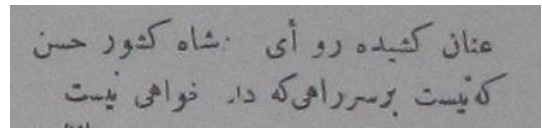 عنان کشیده رو أی شاه کشور حسن
که نیست بر سر راهی که داد خواهی نیست